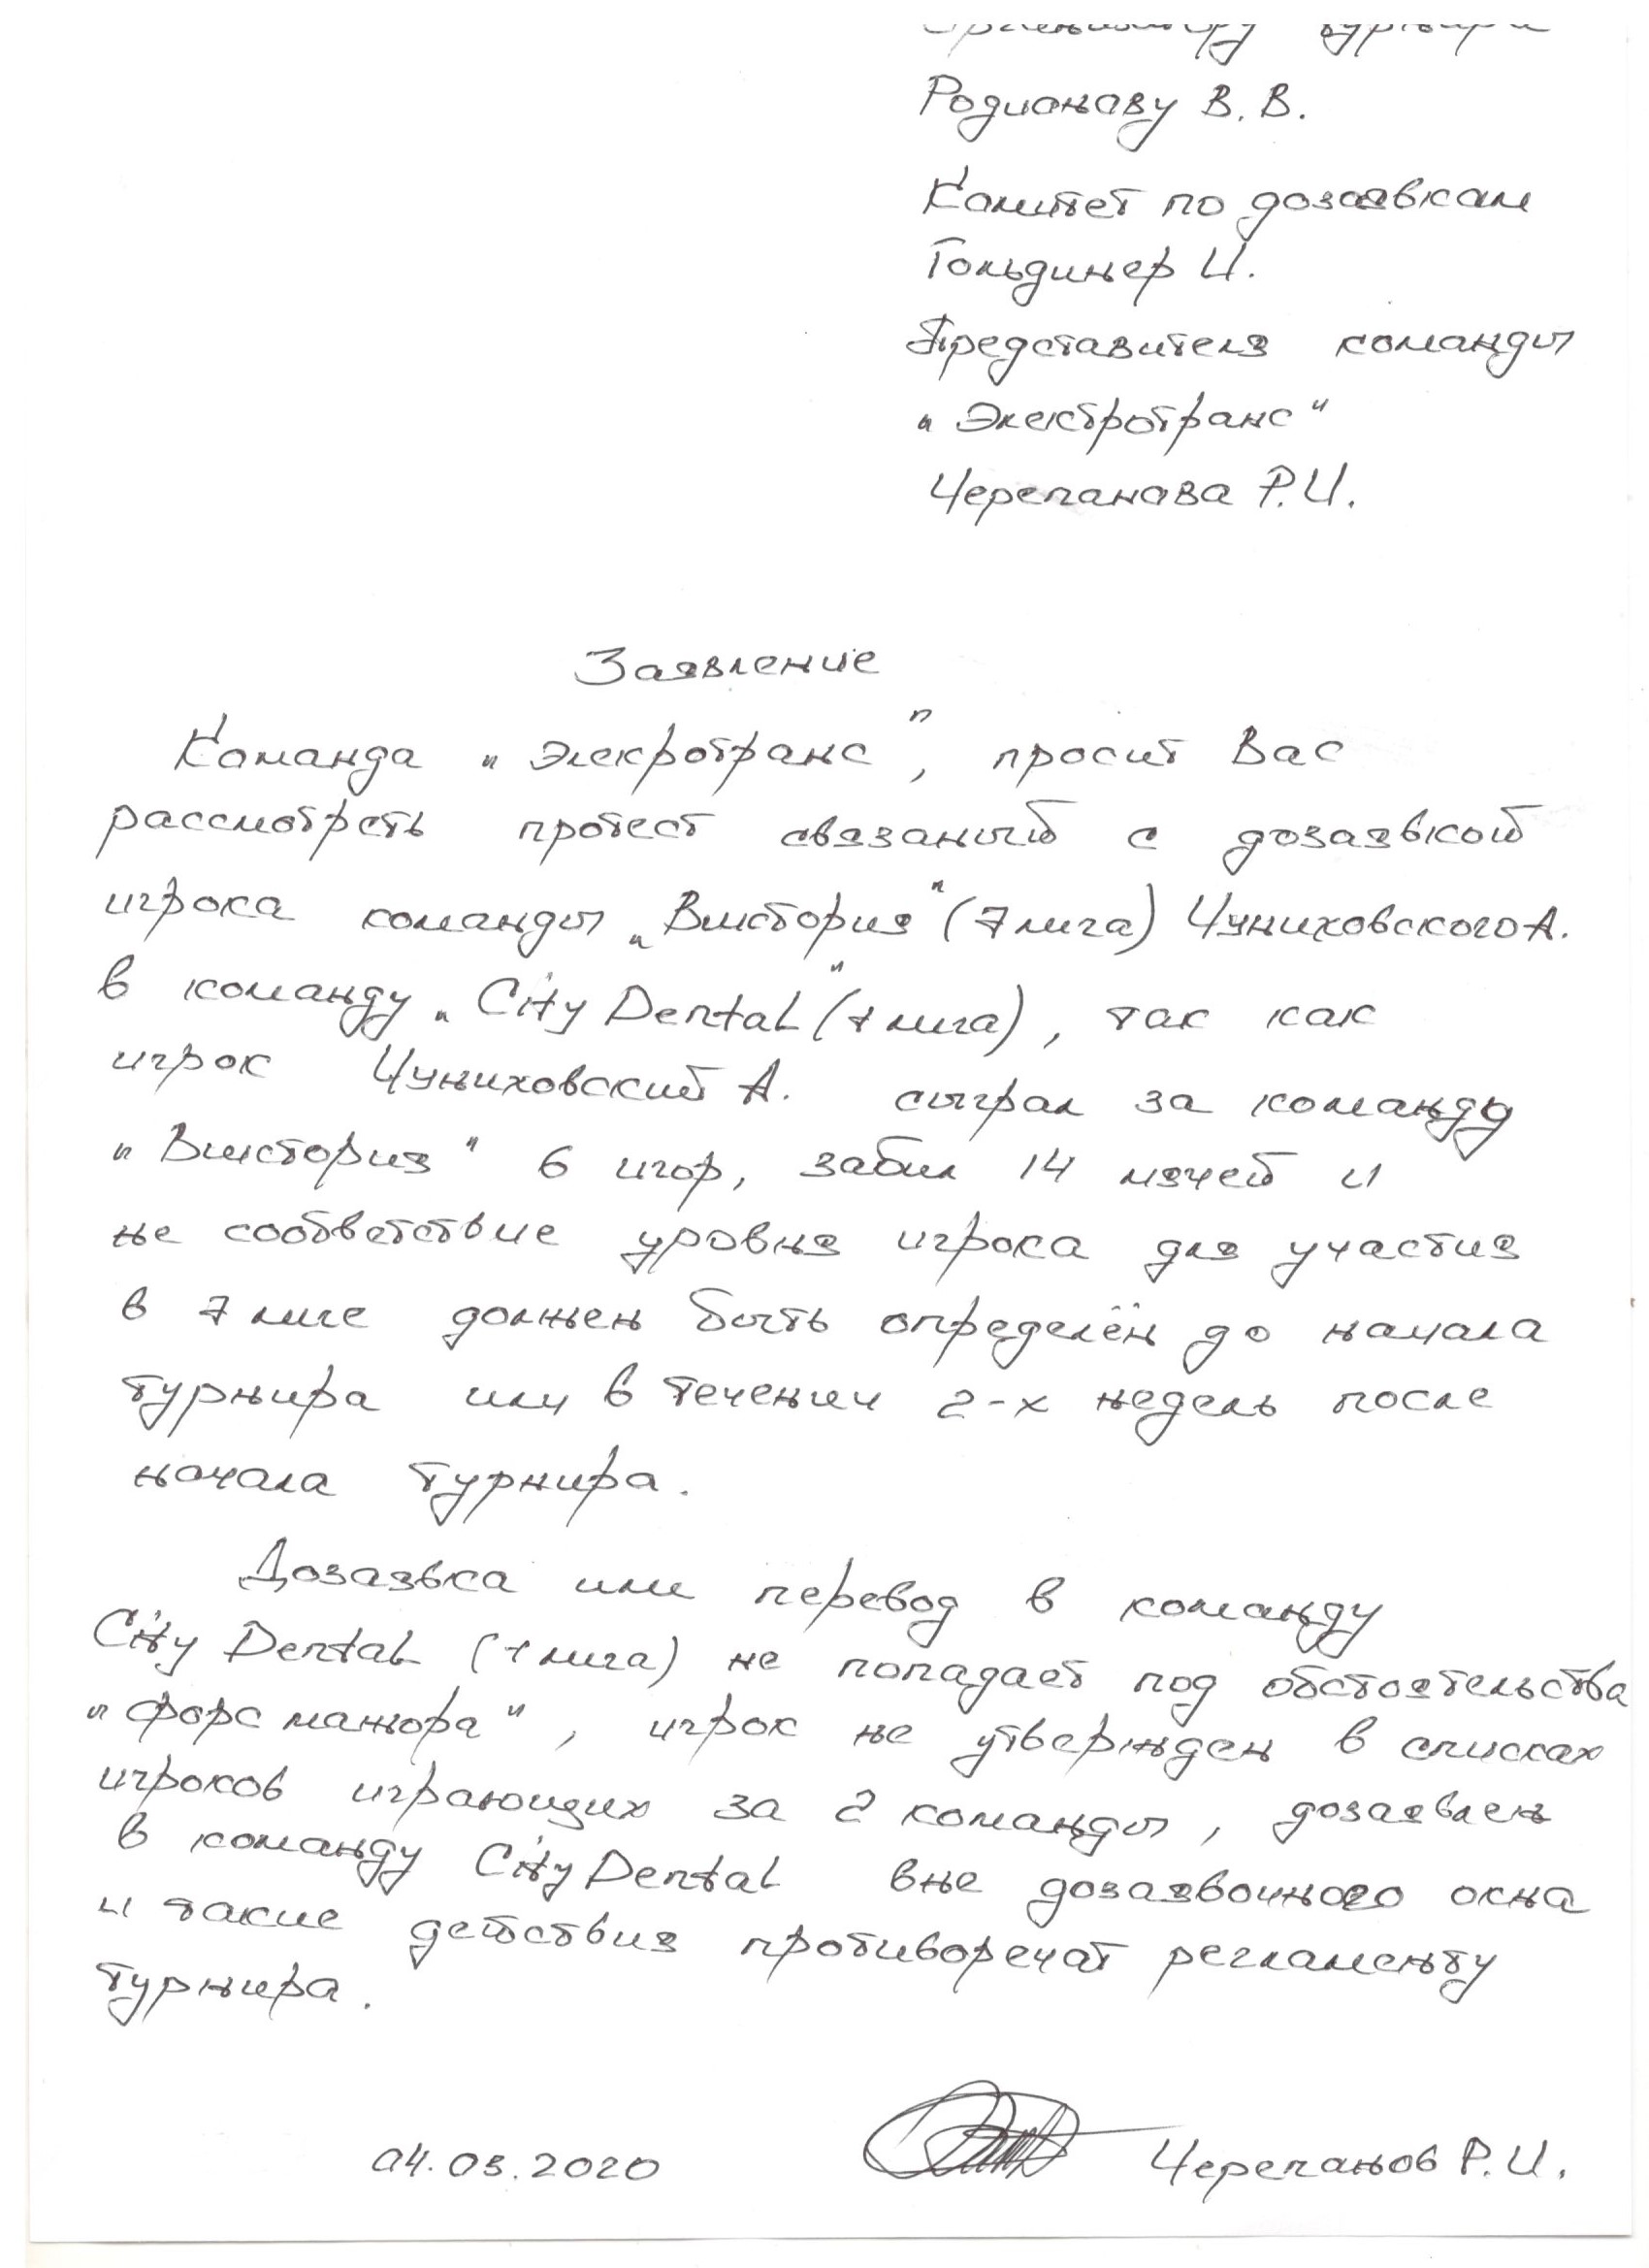 Организатору турнира
Родионову В. В.
Комитет по дозаявкам
Гольдинер И.
Представителя команды
"Электротранс"
Черепанова Р.И.
Заявление
Команда "Элекротранс", просит Вас
рассмотреть протест связаный с дозаявкой
игрока команды "Виктория" (7 лига) Чуниховского А.
в команду "City Dental" (7 лига), так как
игрок Чуниховский А. сыграл за команду
"Виктория" 6 игор, забил 14 мячей и
не соответствие уровня игрока для участия
в 7 лиге должен быть определён до начала
турнира или в течении 2-х недель после
начала турнира.
Дозаявка или перевод в команду
City Dental (7 лига) не попадает под обстоятельства
"форс мажора", игрок не утвержден в списках
игроков играющих за 2 команды, дозаявлен
в команду City Dental вне дозаявочного окна
и такие действия противоречат регламенту
турнира.
04.03.2020 Черепанов Р.И.